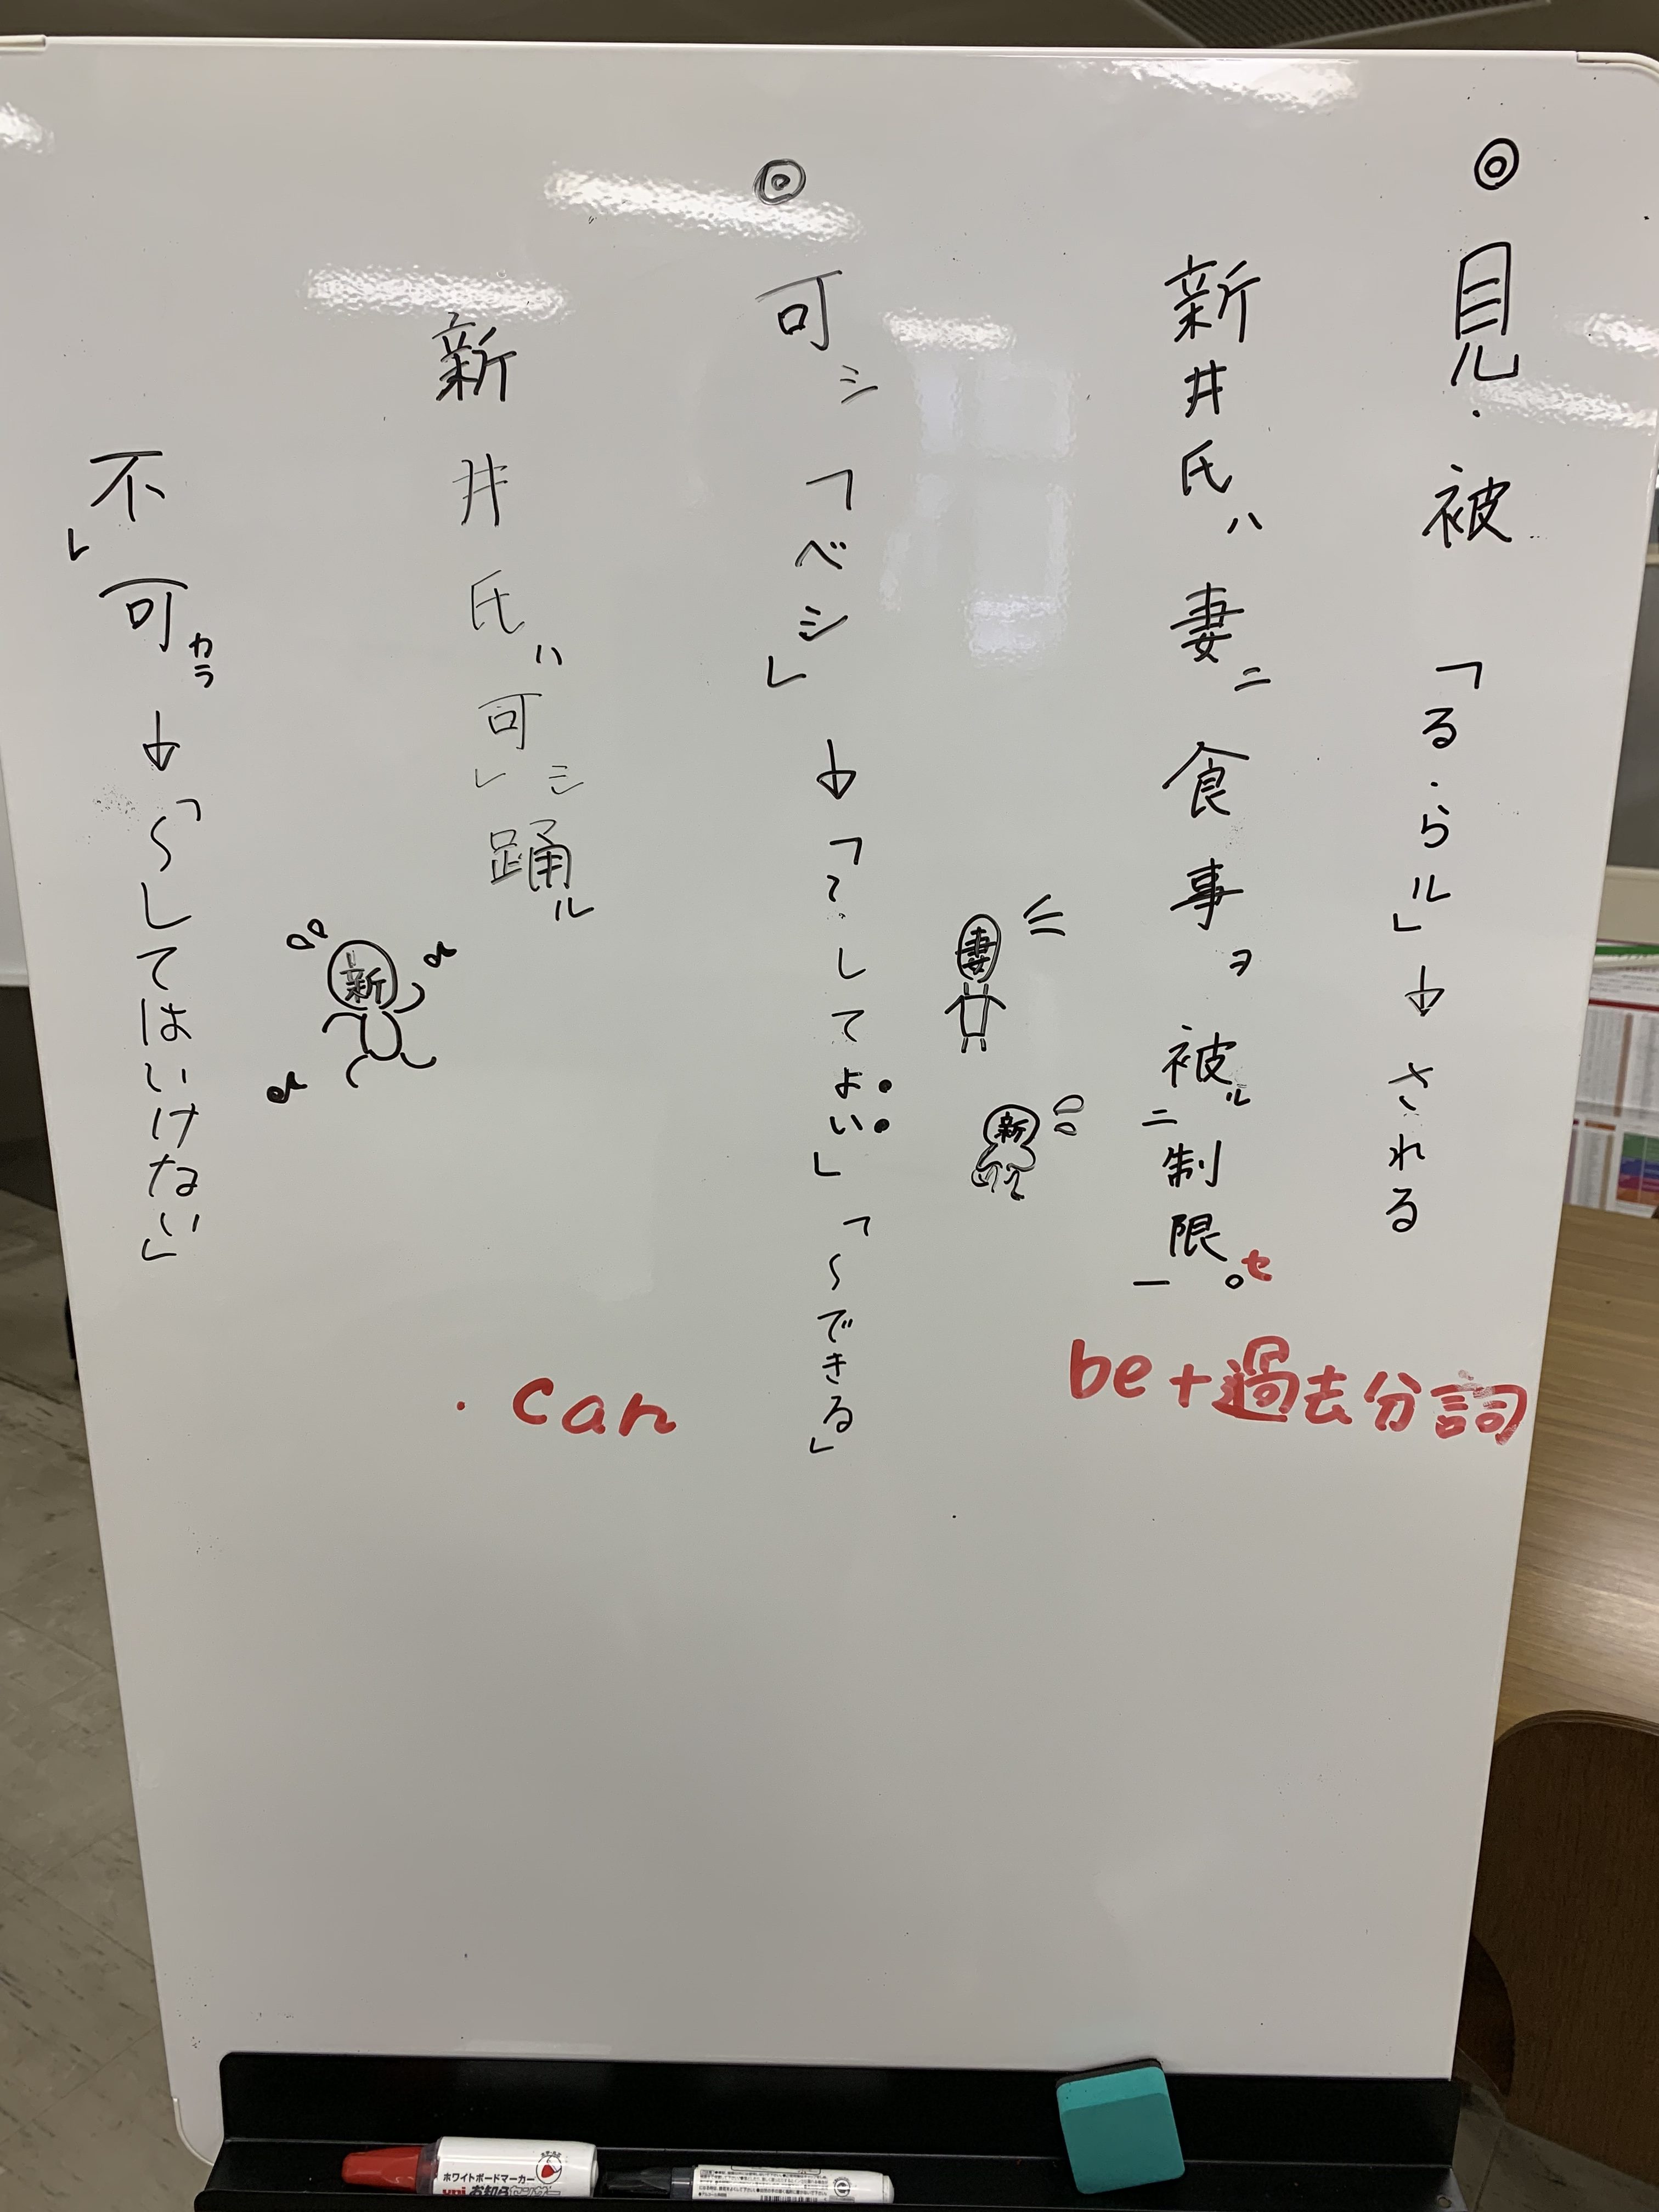 ◎ 見・被 「る・らル」→ される
新井氏ハ妻ニ食事ヲ被ル二制限セ一。
be+過去分詞
妻
新
◎ 可シ 「ベシ」 → 「～してよい」「～できる」
・can
新井氏ハ可シレ踊ル
新
不レ可カラ → 「～してはいけない」
ホワイトボードマーカー
uni お知らセンサー